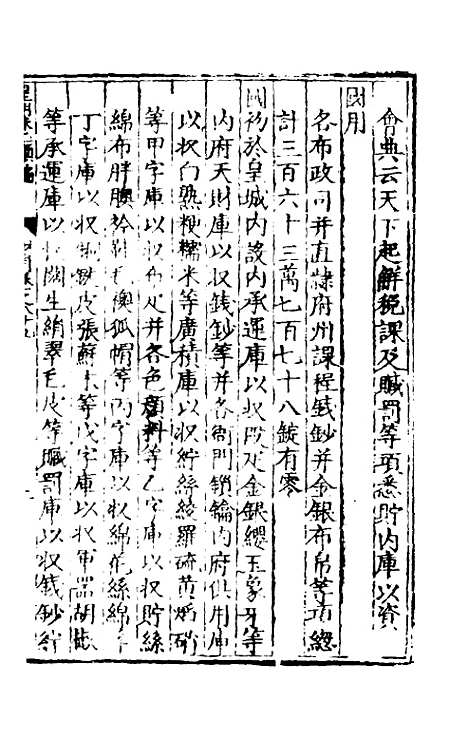 會典云天下起解稅課及贓罰等項悉貯內庫以資
國用
各布政司并直隸府州課程錢鈔并金銀布帛等項總
計三百六十三萬七百七十八錠有零
國初於皇城內設內承運庫以收段疋金銀纓玉象牙等
內府天財庫以収錢鈔等并各衙門鎖鑰內府供用庫
以収白熟粳糯米等廣積庫以収紵絲綾羅硫黃焰硝
等甲字庫以収布疋并各色顏料等乙字庫以収貯絲
綿布胖襖狐帽等丙字庫以収綿花絲綿
丁字庫以収皮張蘇木等戊字庫以収軍器胡椒
等承運庫以収生絹翠毛皮等贓罰庫以収錢鈔紵